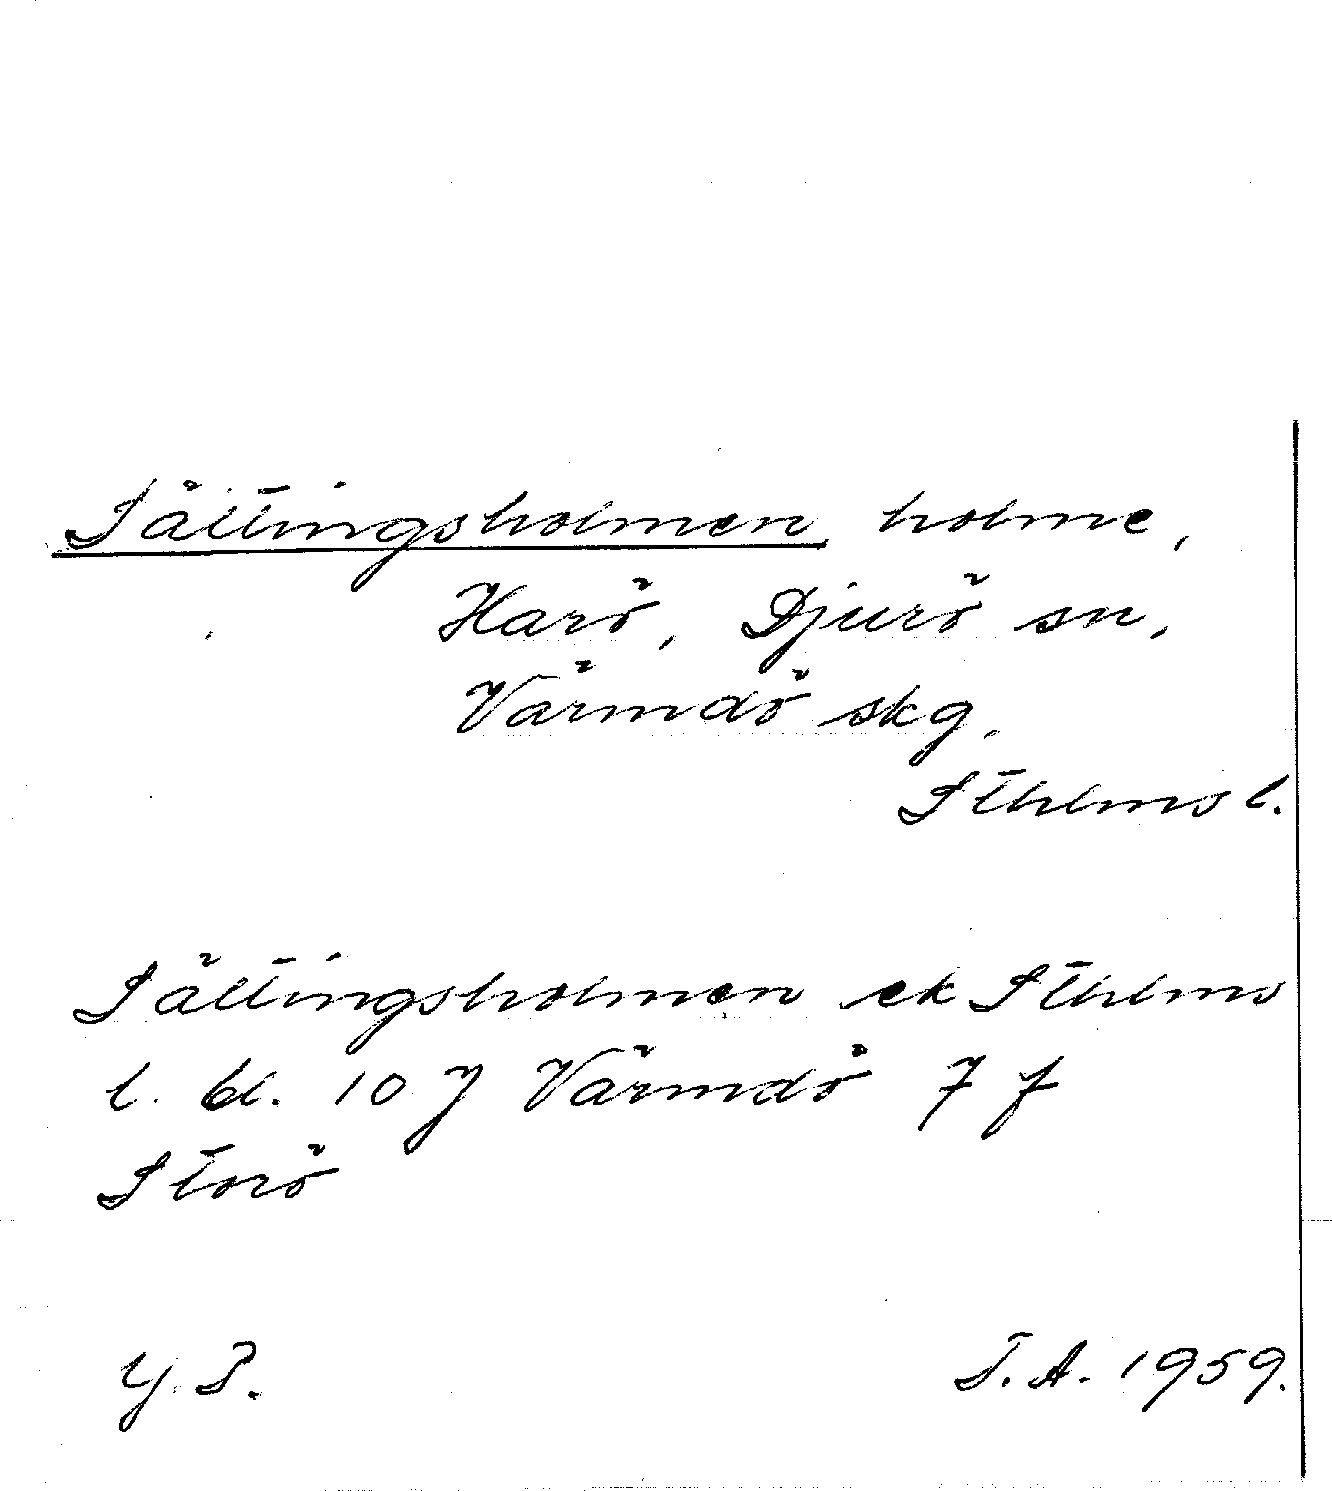 Sältingsholmen holme,
Harö, Djurö sn,
Värmdö skg.
Sthlms l.
Sältingsholmen ek Sthlms
l. bl. 10 J Värmdö 7 f
Storö
Y. P.
T. A. 1959.